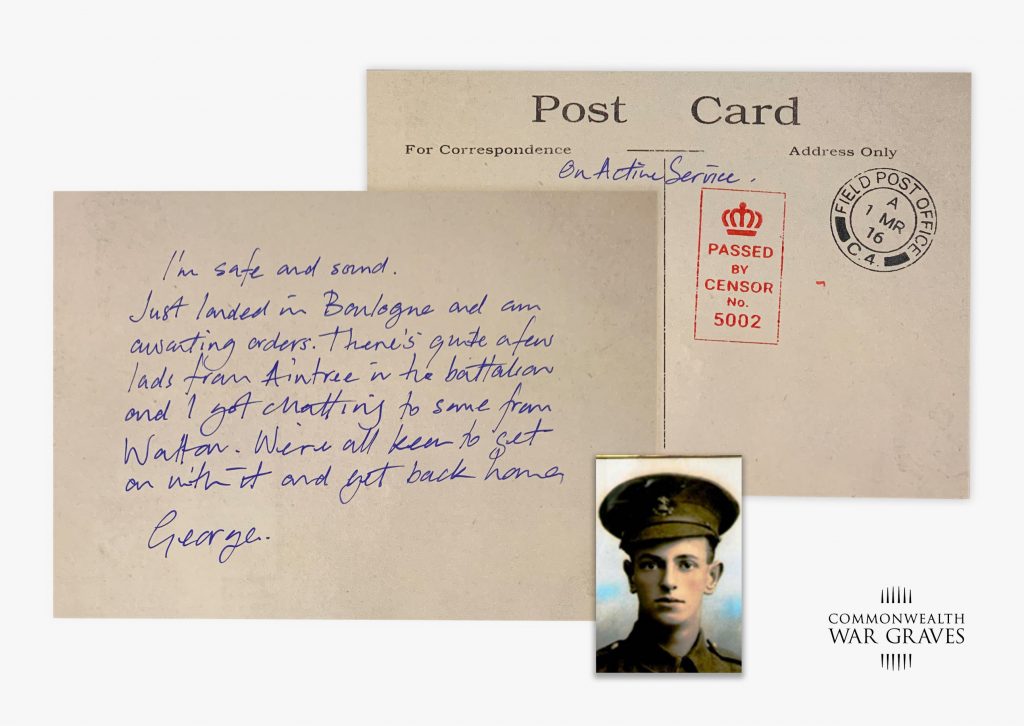 Post Card
For Correspondence
Address Only
On Active Service.
PASSED
BY
CENSOR
No.
5002
FIELD POST OFFICE
A
1 MR
16
C.4.
I'm safe and sound.
Just landed in Boulogne and am
awaiting orders. There's quite a few
lads from Aintree in the battalion
and I got chatting to some from
Walton. We're all keen to get
on with it and get back home,
George.
COMMONWEALTH
WAR GRAVES